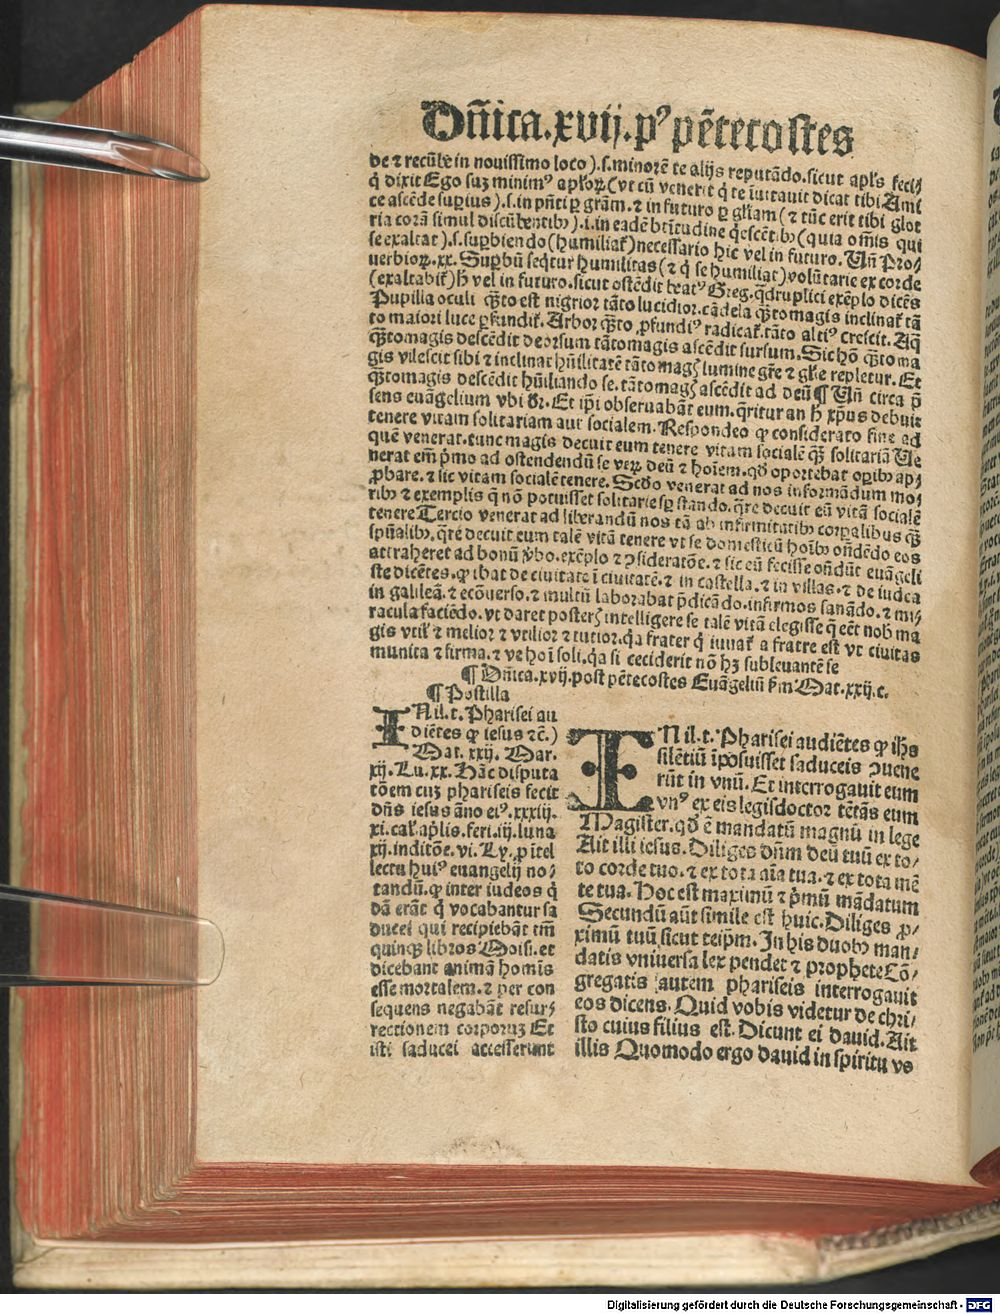 Dn̄ica.xvij.pꝰ pēteco stes
de ⁊ recūbe in nouissimo loco).s.minorē te alijs reputādo.sicut apl's feci⸗
q̄ dixit Ego suꝫ minimꝰ apl'oꝝ (vt cū venerit q̄ te īuitauit dicat tibi Ami
ce ascēde supius).s.in pn̄ti ꝑ grām.⁊ in futuro ꝑ gl'iam (⁊ tūc erit tibi glo
ria corā simul discūbentibꝰ).i.in eadē btītudine q̄escētibꝰ (quia om̄is qui
se exaltat).s.supbiendo (humiliat')necessario hic vel in futuro. Vn̄ Pro⸗
uerbioꝝ.xx. Supbū seq̄tur humilitas (⁊ q̄ se humiliat) volūtarie ex corde
(exaltabit') h̄ vel in futuro.sicut ostēdit beatꝰ Greg. q̄druplici exēplo dicēs
Pupilla oculi q̄ꝫto est nigrior tāto lucidior. cādela q̄ꝫtomagis inclinat' tā
to maiori luce ꝑfundit'. Arbor q̄ꝫto ꝓfundiꝰ radicat'. tāto altiꝰ crescit. Aq̄
q̄ꝫtomagis descēdit deorsum tātomagis ascēdit sursum. Sic hō q̄ꝫto ma
gis vilescit sibi ⁊ inclinat hūilitatē tāto magꝭ lumine gr̄e ⁊ gl'ie repletur. Et
q̄ꝫtomagis descēdit hūiliando se. tāto magꝭ ascēdit ad deū ¶ Vn̄ circa p̄
sens euāgelium vbi dr̄. Et ip̄i obseruabāt eum. q̄ritur an h̄ xp̄us debuit
tenere vitam solitariam aut socialem. Respondeo ꝙ considerato fine ad
quē venerat. tunc magis decuit eum tenere vitam socialē q̄ꝫ solitariā Ve
nerat em̄ p̄mo ad ostendendū se veꝝ deū ⁊ hoīem. qd̄ oportebat opibꝰ ap⸗
ꝓbare. ⁊ sic vitam socialē tenere. Scd̄o venerat ad nos informādum mo⸗
ribꝰ ⁊ exemplis q̄ nō potuisset solitarie sp̄ stando. q̄re decuit eū vitā socialē
tenere Tercio venerat ad liberandū nos tā ab infirmitatibꝰ corpalibus q̄ꝫ
spūalibꝰ. q̄re decuit eum talē vitā tenere vt se domesticū hoībꝰ on̄dēdo eos
attraheret ad bonū v̄bo. exēplo ⁊ ꝯsideratōe. ⁊ sic eū fecisse on̄dūt euāgeli
ste dicētes. ꝙ ibat de ciuitate ī ciuitatē. ⁊ in castella. ⁊ in villas. ⁊ de iudea
in galileā. ⁊ ecōuerso. ⁊ multū laborabat p̄dicādo. infirmos sanādo. ⁊ mi⸗
racula faciēdo. vt daret posterꝭ intelligere se talē vitā elegisse q̄ eēt nob ma
gis vtil' ⁊ melior ⁊ vtilior ⁊ tutior. q̄a frater q̄ iuuat' a fratre est vt ciuitas
munita ⁊ firma. ⁊ ve hoī soli. q̄a si ceciderit nō hꝫ subleuantē se
¶ Dn̄ica.xvij.post pētecostes Euāgeliū s'm Mat.xxij.c.
¶ Postilla
IN il.t. Pharisei au
diētes ꝙ iesus ⁊c̄.)
Mat. xxij. Mar.
xij. Lu. xx. Hāc disputa
tōem cuꝫ phariseis fecit
dn̄s iesus āno eiꝰ.xxxiij.
xi. cal'. apl̄is. feri. iij. luna
xij. inditōe. vi. Ly. ꝓ ītel
lectu huiꝰ euangelij no⸗
tandū. ꝙ inter iudeos q̄
dā erāt q̄ vocabantur sa
ducei qui recipiebāt tm̄
quinqꝫ libros Moisi. et
dicebant animā hominis
esse mortalem. ⁊ per con
sequens negabāt resur⸗
rectionem corporuꝫ Et
isti saducei accesserunt
IN il.t. Pharisei audiētes ꝙ ih̄s
silētiū īposuisset saduceis ꝯuene
rūt in vnū. Et interrogauit eum
vnꝰ ex eis legisdoctor tētās eum
Magister. qd̄ ē mandatū magnū in lege
Ait illi iesus. Diliges dn̄m deū tuū ex to⸗
to corde tuo. ⁊ ex tota aīa tua. ⁊ ex tota mē
te tua. Hoc est maximū ⁊ p̄mū mādatum
Secundū aūt simile est huic. Diliges ꝓ⸗
ximū tuū sicut teip̄m. In his duobꝰ man⸗
datis vniuersa lex pendet ⁊ prophete Cō⸗
gregatis autem phariseis interrogauit
eos dicens. Quid vobis videtur de chri⸗
sto cuius filius est. Dicunt ei dauid. Ait
illis Quomodo ergo dauid in spiritu vo
Digitalisierung gefördert durch die Deutsche Forschungsgemeinschaft - DFG